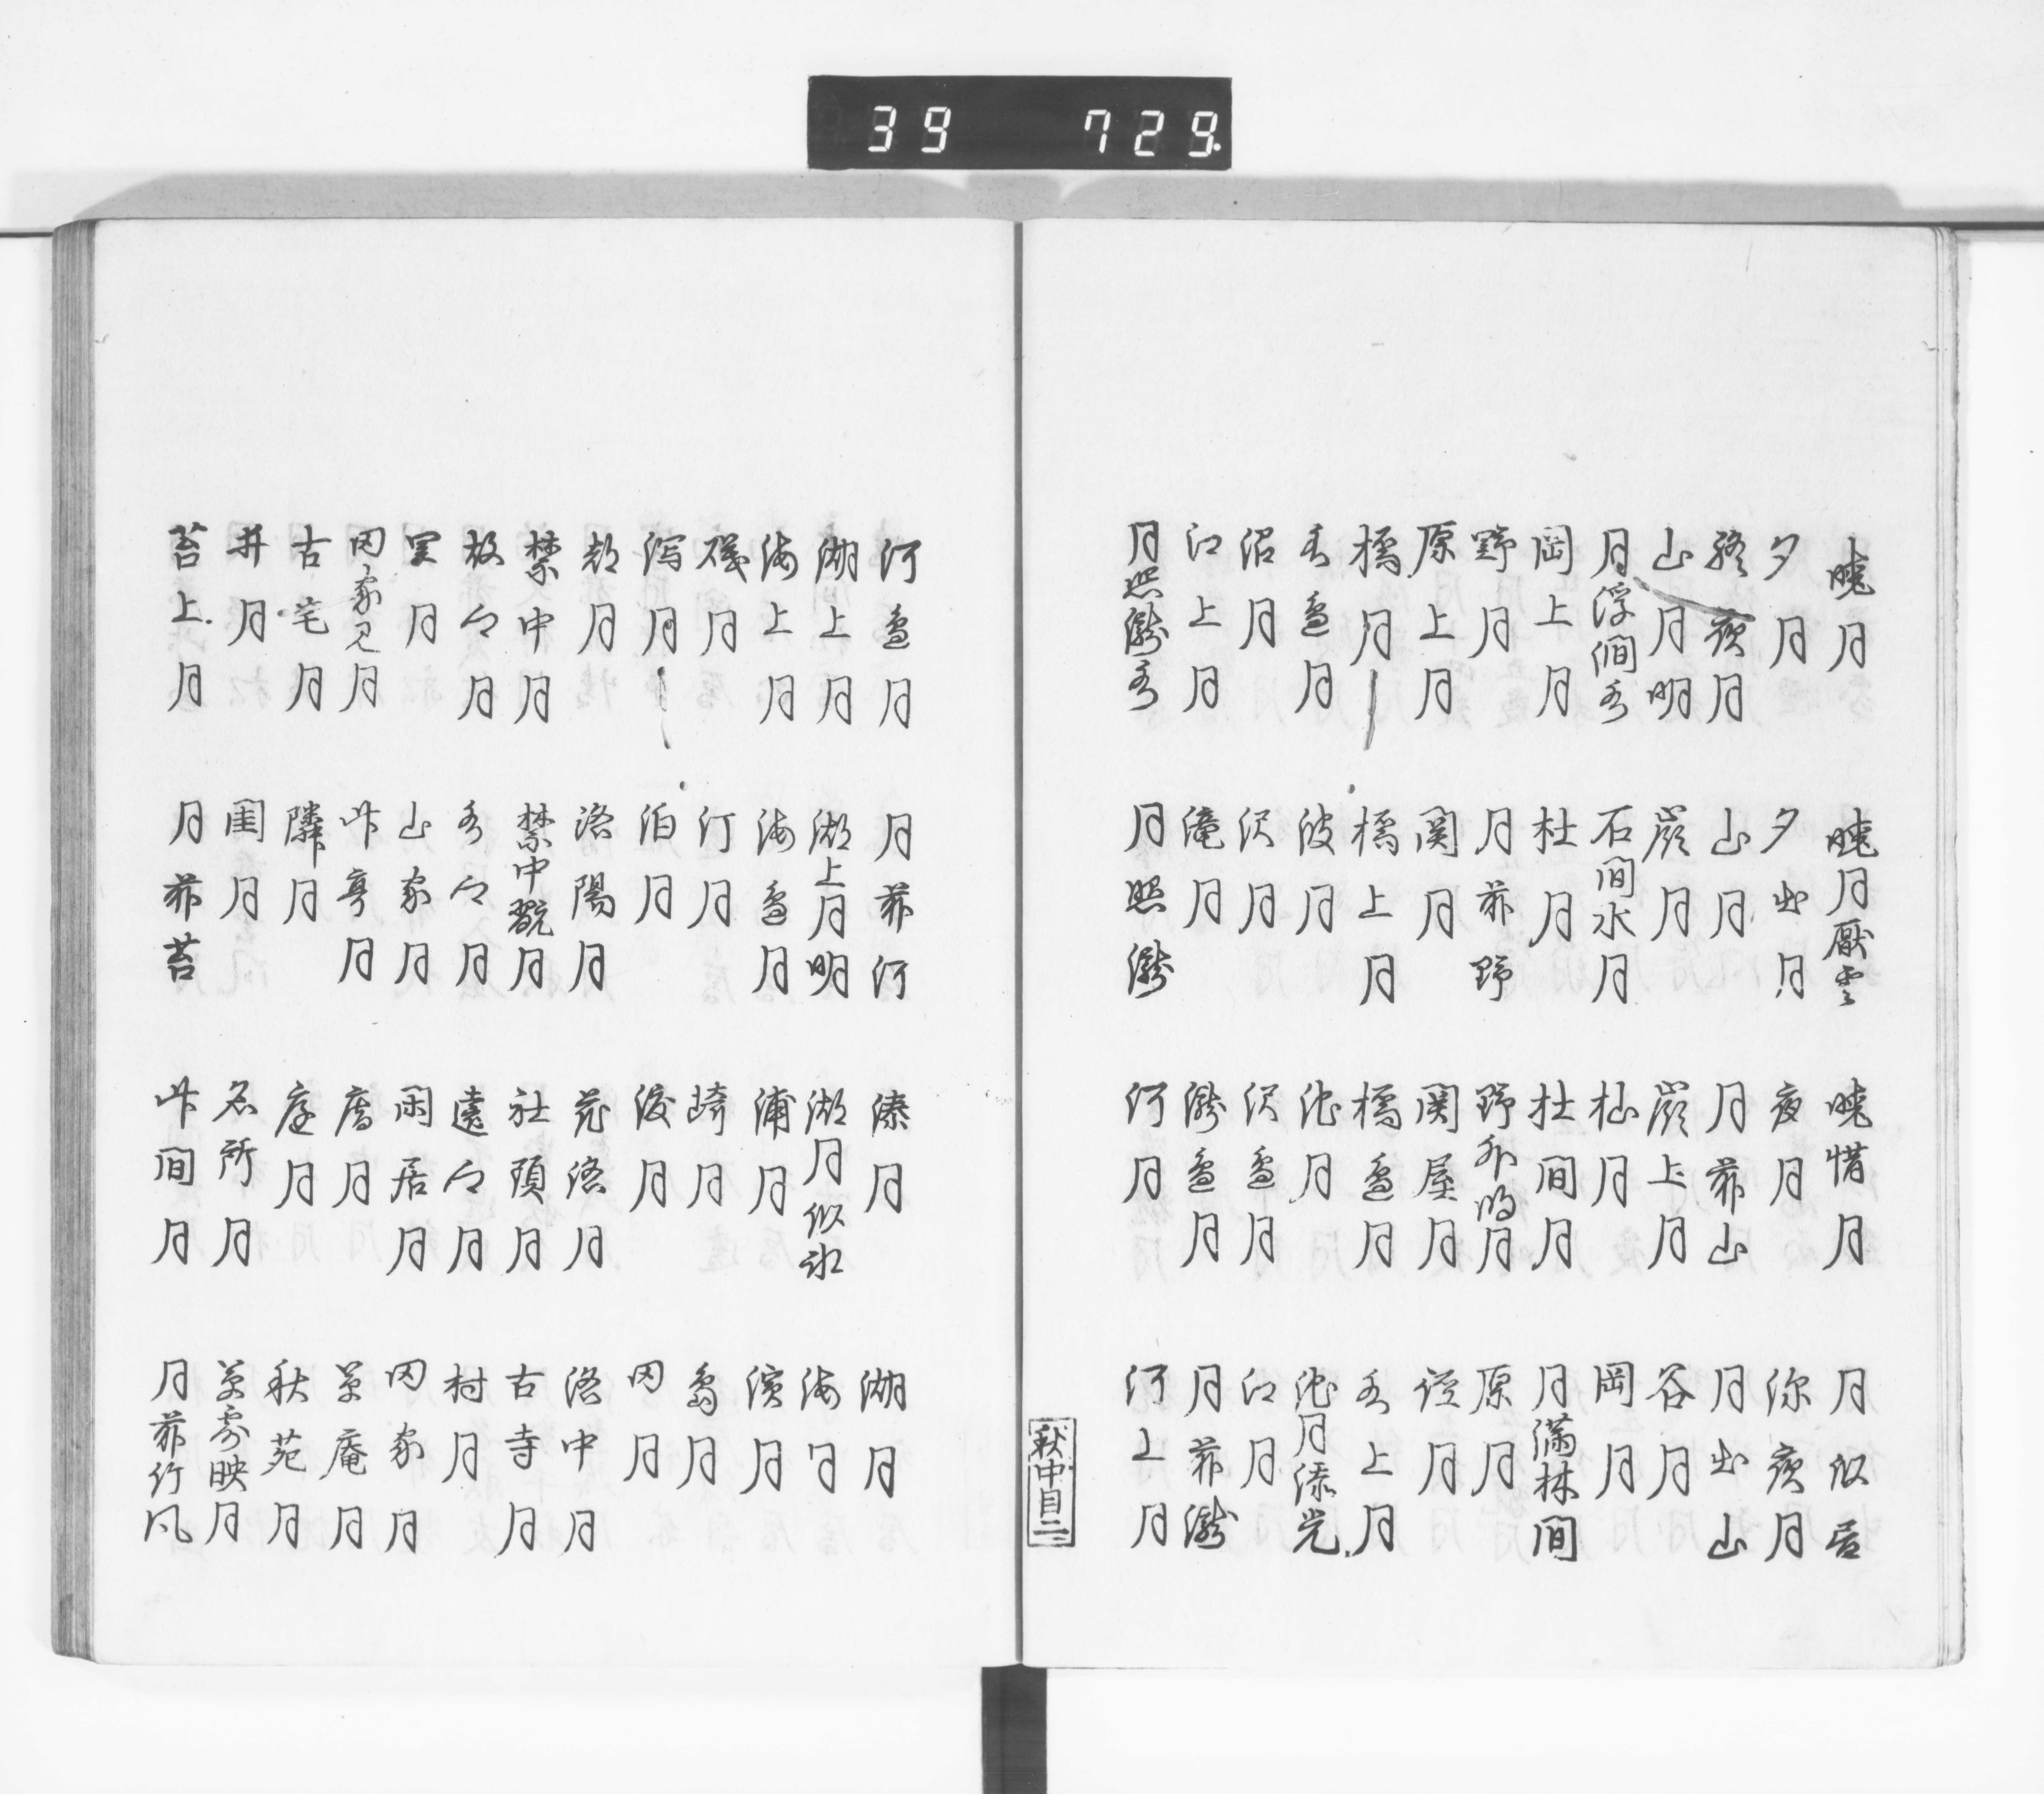 39 729
暁月 暁月厭雲 暁惜月 月似昼
夕月 夕出月 夜月 深夜月
終夜月 山月 月前山 月出山
山月明 嶺月 嶺上月 谷月
月浮澗水 石間水月 杣月 岡月
岡上月 杜月 杜間月 月満林間
野月 月前野 野外明月 原月
原上月 関月 関屋月 径月
橋月 橋上月 橋辺月 水上月
水辺月 波月 池月 池月添光
沼月 沢月 沢辺月 江月
江上月 滝月 瀧辺月 月前瀧
月照瀧水 月照瀧 河月 河上月
秋中目二
河辺月 月前河 湊月 湖月
湖上月 湖上月明 湖月似氷 海月
海上月 海辺月 浦月 濱月
磯月 汀月 崎月 島月
潟月 泊月 渡月 田月
都月 洛陽月 花洛月 洛中月
禁中月 禁中翫月 社頭月 古寺月
故郷月 水郷月 遠郷月 村月
里月 山家月 閑居月 田家月
田家見月 竹亭月 月 草庵月
古宅月 隣月 庭月 秋苑月
井月 閨月 名所月 草露映月
苔上月 月前苔 竹間月 月前竹風